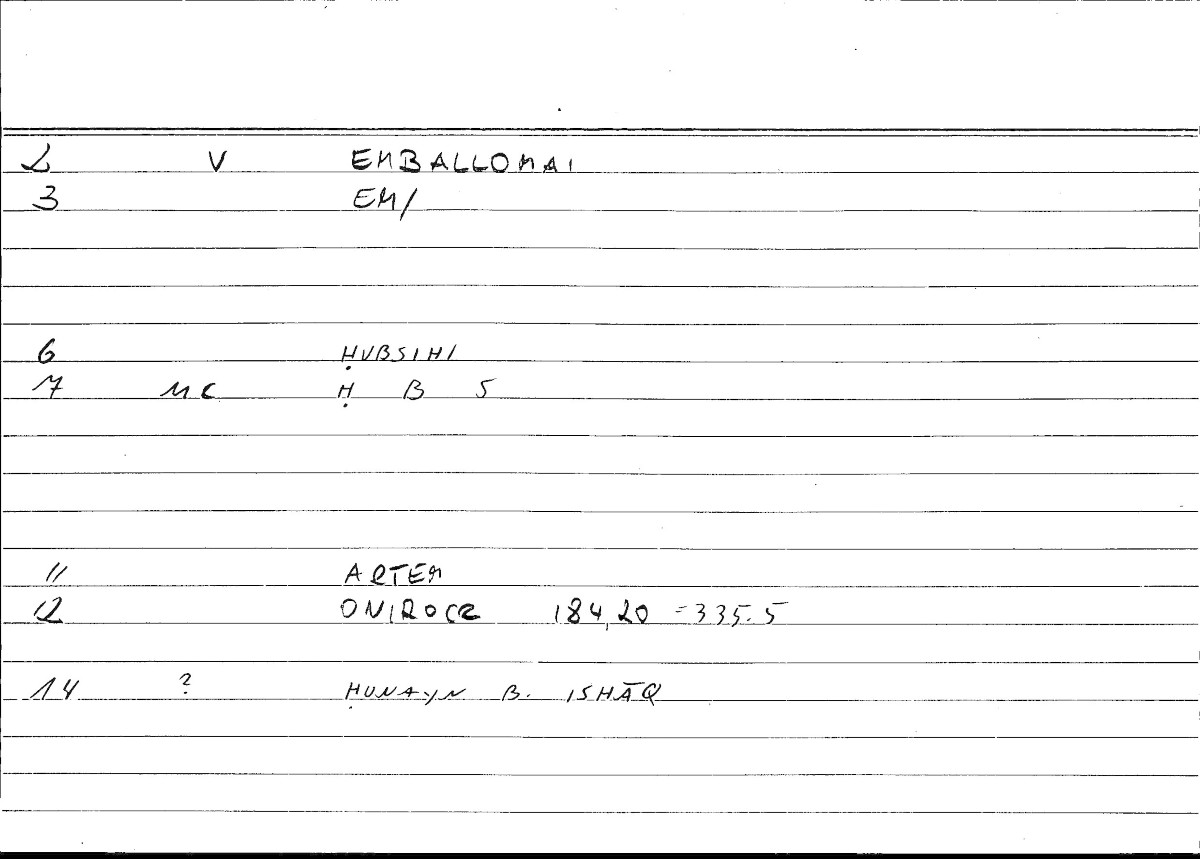 2 V EMBALLOMAI
3 EM/
6 ḤUBSIHI
7 MC Ḥ B S
11 ARTEM
12 ONIROCR 184,20 = 335.5
14 ? ḤUNAYN B. ISHĀQ